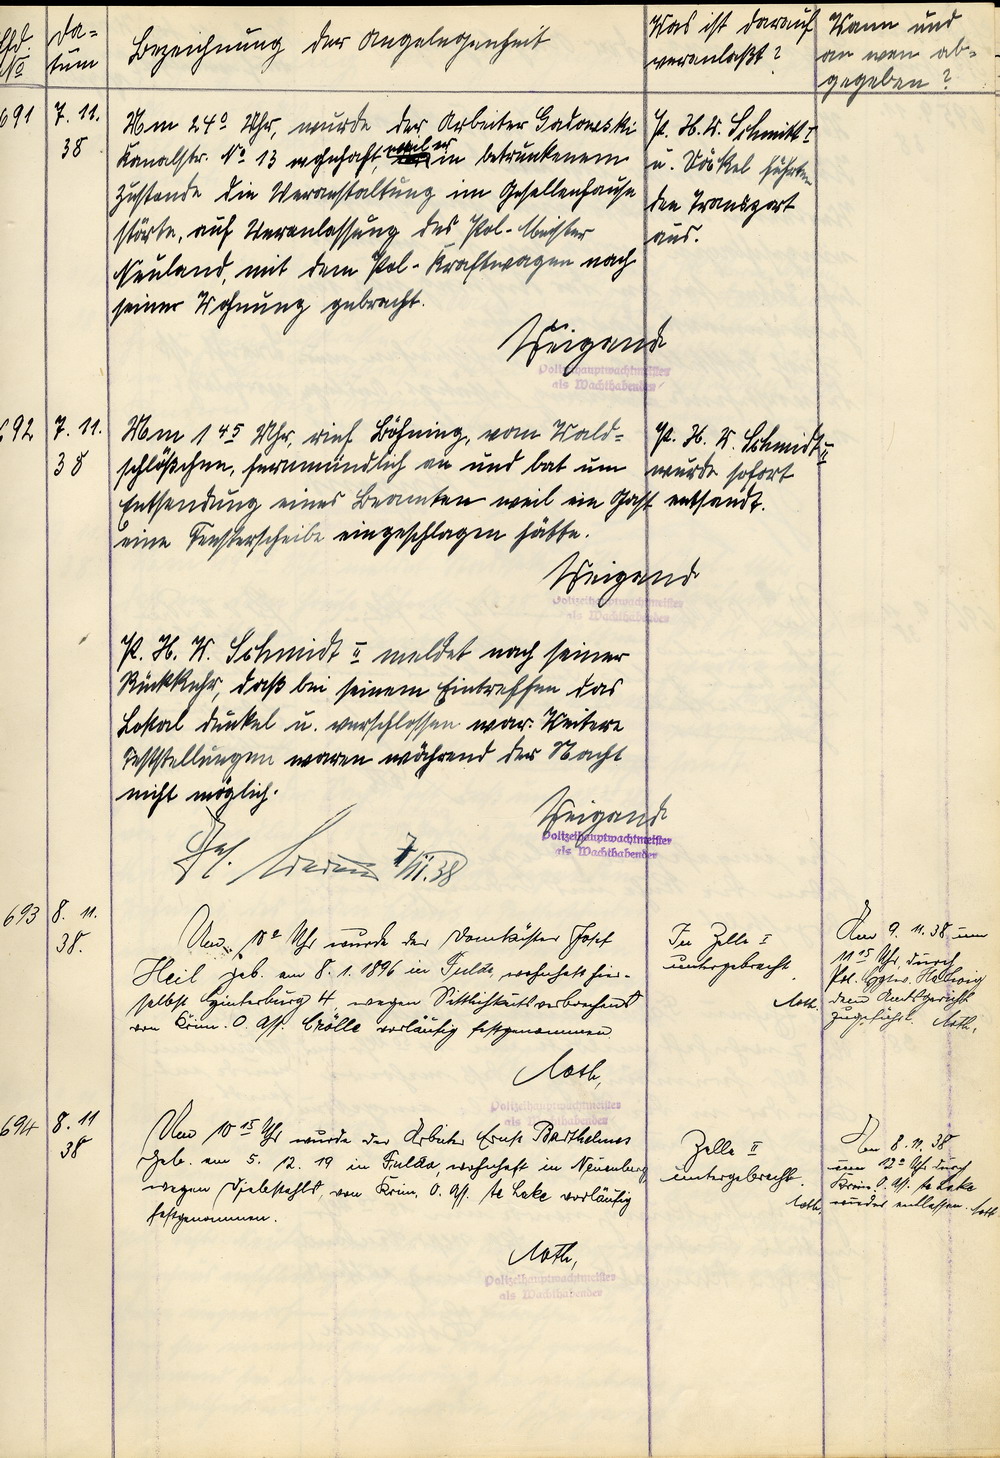 Lfd. No
Da=
tum
Bezeichnung der Angelegenheit
Was ist darauf
veranlaßt?
Wann und
an wen ab=
gegeben?
691
7. 11.
38
Um 24⁰ Uhr, wurde der Arbeiter Gadowski
Kanalstr. No 13 wohnhaft, weil er in betrunkenem
Zustande die Veranstaltung im Gesellenhause
störte, auf Veranlassung des Pol.-Meister
Neuland, mit dem Pol.-Kraftwagen nach
seiner Wohnung gebracht.
P. H. W. Schmitt I
u. Döckel führten
den Transport
aus.
Weigand
Polizeihauptwachtmeister
als Wachthabender
692
7. 11.
38
Um 1 45 Uhr, rief Böhning, vom Wald=
schlößchen, fernmündlich an und bat um
Entsendung eines Beamten weil ein Gast
eine Fensterscheibe eingeschlagen hätte.
P. H. W. Schmidt II
wurde sofort
entsandt.
Weigand
Polizeihauptwachtmeister
als Wachthabender
P. H. W. Schmidt II meldet nach seiner
Rückkehr, daß bei seinem Eintreffen das
Lokal dunkel u. verschlossen war. Weitere
Feststellungen waren während der Nacht
nicht möglich.
Weigand
Polizeihauptwachtmeister
als Wachthabender
Ges. 7/XI.38
693
8. 11.
38.
Um 10 Uhr wurde der Domküster Josef
Heil geb. am 8. 1. 1896 in Fulda, wohnhaft hier-
selbst Hinterburg 4, wegen Sittlichkeitsverbrechens
von Krim. O. Ass. Crölle vorläufig festgenommen.
In Zelle I
untergebracht.
Noth.
Am 9. 11. 38 um
11 15 Uhr, durch
Pol. Hptw. Hellwig
dem Amtsgericht
zugeführt. Noth,
Noth,
Polizeihauptwachtmeister
als Wachthabender
694
8. 11
38
Um 10 15 Uhr wurde der Arbeiter Ernst Barthelmes
geb. am 5. 12. 19 in Fulda, wohnhaft in Neuenberg
wegen Diebstahls, von Krim. O. Ass. te Lake vorläufig
festgenommen.
Zelle II
untergebracht.
Noth,
Am 8. 11. 38
um 12 Uhr durch
Krim. O. Ass. te Lake
wieder entlassen. Noth
Noth,
Polizeihauptwachtmeister
als Wachthabender